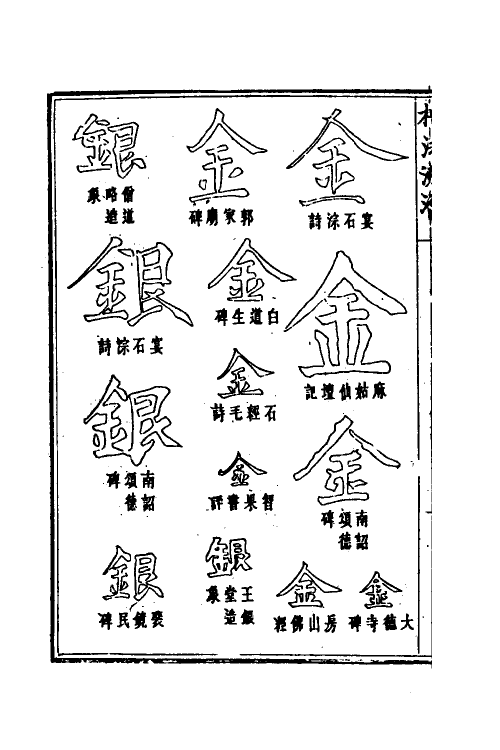 楷法溯源
金
宴石淙詩
金
麻姑仙壇記
金
南詔頌德碑
金
大德寺碑
金
房山佛經
金
郭家廟碑
金
白道生碑
金
石經毛詩
金
智果書評
銀
王銀堂造象
銀
僧道略造象
銀
宴石淙詩
銀
南詔頌德碑
銀
裴鏡民碑